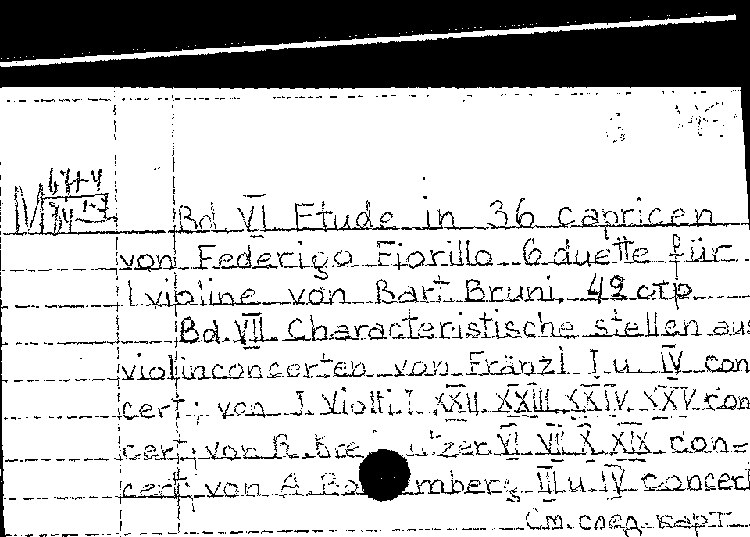 Bd. VI Etude in 36 capricen
von Federigo Fiorillo 6 duette für
1 violine von Bart Bruni. 42 стр
Bd. VII. Characteristische stellen aus
violinconcerten von Fränzl I u. IV con
cert; von J. Viotti. I XXII. XXIII. XXIV. XXV con
cert; von R. Kre utzer VI VII X XIX con=
cert; von A. Ro mberg III u. IV concert
См. след. карт